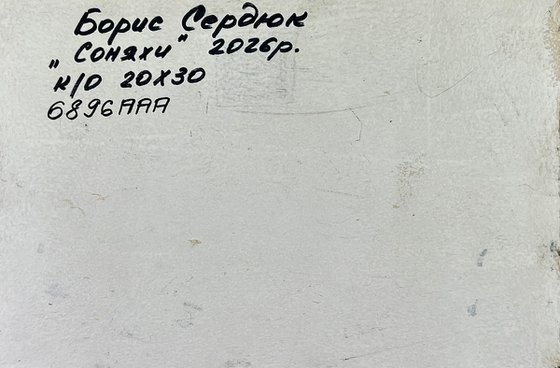 Борис Сердюк
„Соняхи" 2026р.
к/о 20х30
6896ААА